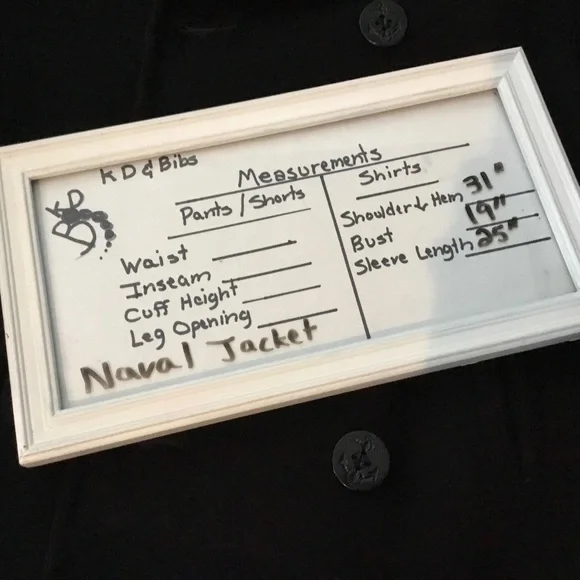 KD & Bibs
KD
B
Measurements
Pants / Shorts
Waist
Inseam
Cuff Height
Leg Opening
Shirts
Shoulder ↓ Hem 31"
Bust 19"
Sleeve Length 25"
Naval Jacket